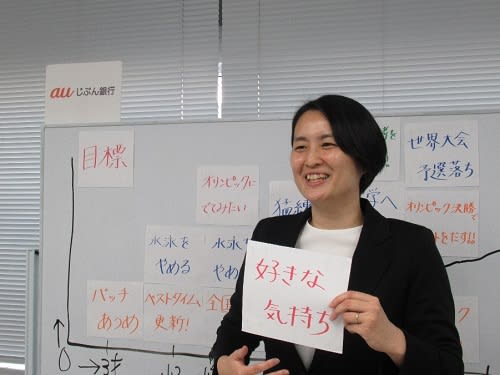 au じぶん銀行
目標
世界大会
予選落ち
オリンピックに
でてみたい
猛練
学へ
オリンピック決勝で
水泳を
やめる
水泳
や
バッチ
あつめ
ベストタイム
更新!
全国
好きな
気持ち
0
3才